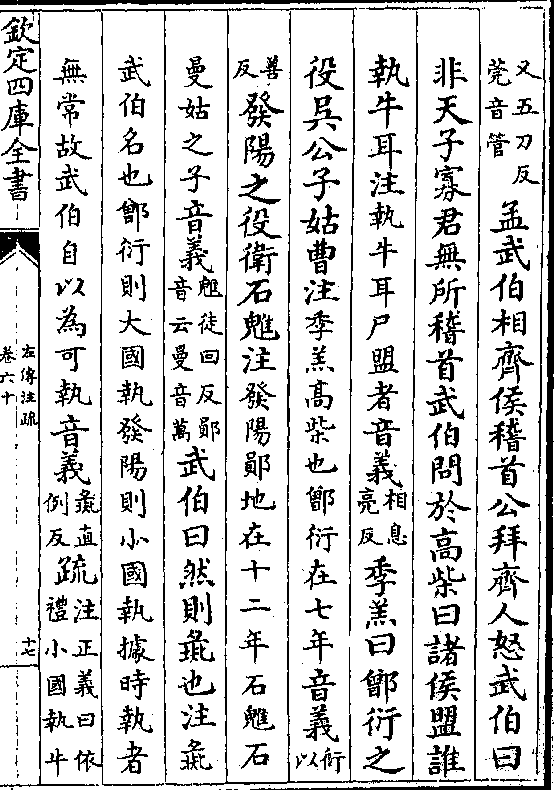 又五刀反莞音管孟武伯相齊侯稽首公拜齊人怒武伯曰
非天子寡君無所稽首武伯問於高柴曰諸侯盟誰
執牛耳注執牛耳尸盟者音義相息亮反季羔曰鄫衍之
役吳公子姑曹注季羔高柴也鄫衍在七年音義衍以
善反發陽之役衛石魋注發陽鄖地在十二年石魋石
曼姑之子音義魋徒回反鄖音云曼音萬武伯曰然則彘也注彘
武伯名也鄫衍則大國執發陽則小國執據時執者
無常故武伯自以為可執音義彘直例反疏注正義曰依禮小國執牛
欽定四庫全書
左傳注疏
卷六十
十七